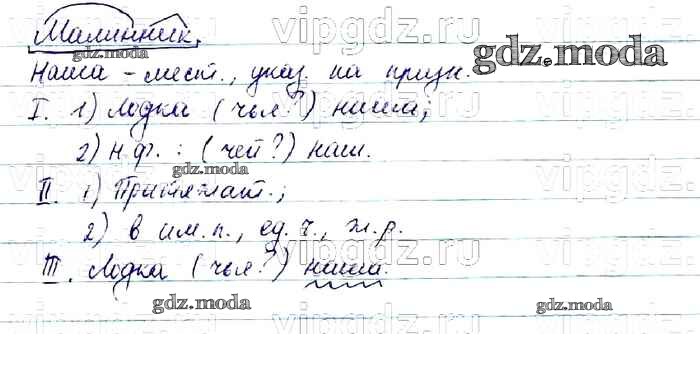 Малинник.
Наша - мест., указ. на призн.
I. 1) Лодка (чья?) наша;
2) н.ф. : (чей?) наш.
II. 1) Притяжат.;
2) в им.п., ед.ч., ж.р.
III. Лодка (чья?) наша.
vipgdz.ru
gdz.moda
gdz.moda
gdz.moda
gdz.moda
gdz.moda